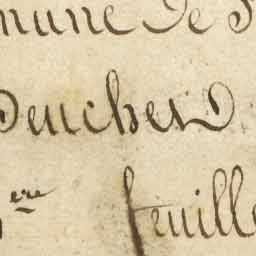 mune De
Deuches
ere feuille